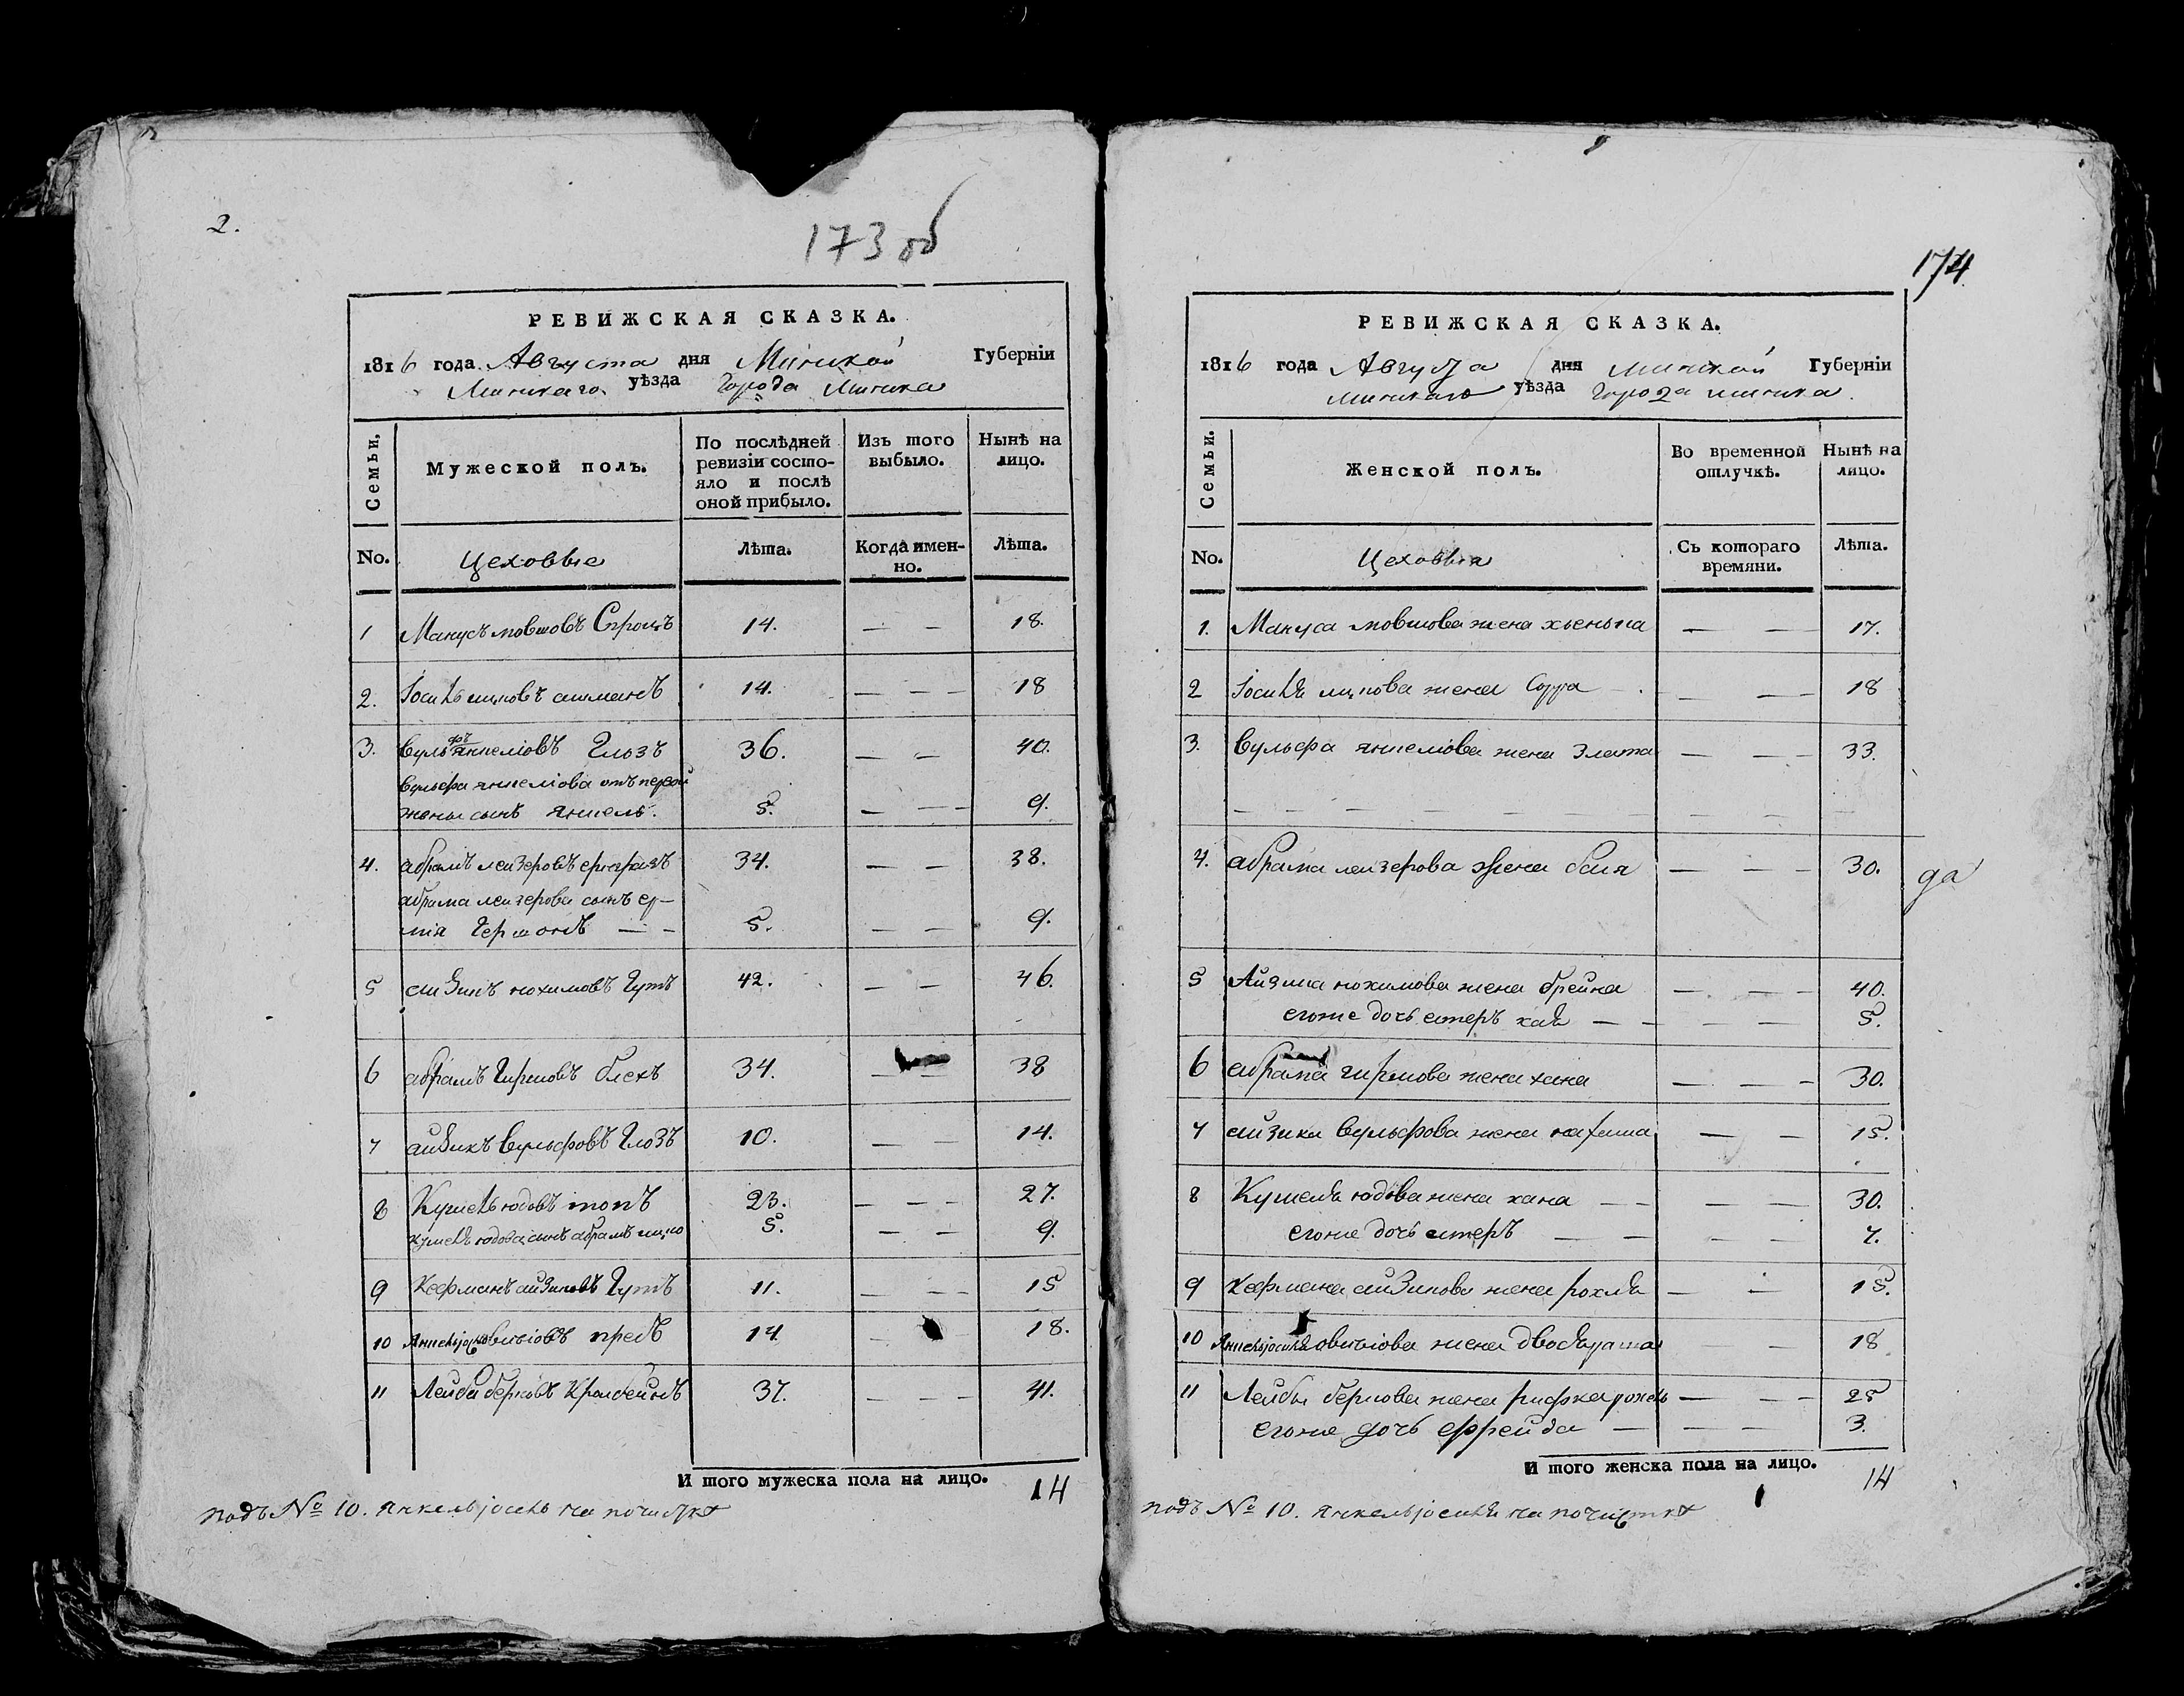 2.
173 об
РЕВИЖСКАЯ СКАЗКА.
1816 года Августа дня Минской Губерніи
Минскаго уѣзда Города Минска
Семьи.
Мужеской полъ.
По послѣдней ревизіи состо-
яло и послѣ
оной прибыло.
Изъ того выбыло.
Нынѣ на лицо.
No.
Цеховые
Лѣта.
Когда имен-
но.
Лѣта.
1 Манусъ мовшовъ 14. — — 18.
2. 14. — — — 18
3. вульфъ янкеліовъ Глозъ 36. — — 40.
вульфа янкеліова отъ первой
жены сынъ янкель. 5. — — — 9.
4. абрамъ лейзеровъ 34. — — 38.
абрама лейзерова сынъ
Гершонъ — — 5. — — 9.
5 айзикъ нохимовъ Гутъ 42. — — 46.
6 абрамъ Гиршовъ блехъ 34. — — 38
7 айзикъ вульфовъ Глозъ 10. — — 14.
8 Кушель юдовъ топъ 23. — — — 27.
кушеля юдова сынъ абрамъ 5. — — 9.
9 Кофманъ айзиковъ Гутъ 11. — — — 15
10 14 — 18.
11 Лейба берковъ 37. — — — 41.
И того мужеска пола на лицо. 14
подъ № 10. янкель іосель на почисткѣ
174
РЕВИЖСКАЯ СКАЗКА.
1816 года Августа дня Минской Губерніи
Минскаго уѣзда Города минска.
Семьи.
Женской полъ.
Во временной отлучкѣ.
Нынѣ на лицо.
No.
Цеховыя
Съ котораго
времяни.
Лѣта.
1. Мануса мовшова жена — — 17.
2 жена Сорра — — — 18
3. вульфа янкеліова жена Злата — — — 33.
— — — — — — — — —
4. абрама лейзерова жена бася — — — 30. да
5 Айзика нохимова жена брейна — — — 40.
егоже дочь естеръ хая — — — — 5.
6 абрама гиршова жена хана — — — 30.
7 айзика вульфова жена — — 15.
8 Кушеля юдова жена хана — — — — 30.
егоже дочь естеръ — — — — 7.
9 Кофмана айзикова жена рохля — — 15.
10 жена — — 18
11 Лейбы беркова жена рифка — — — 25
егоже дочь ффрейда — — — — 3.
И того женска пола на лицо. 14
подъ № 10. янкель іоселя на почисткѣ